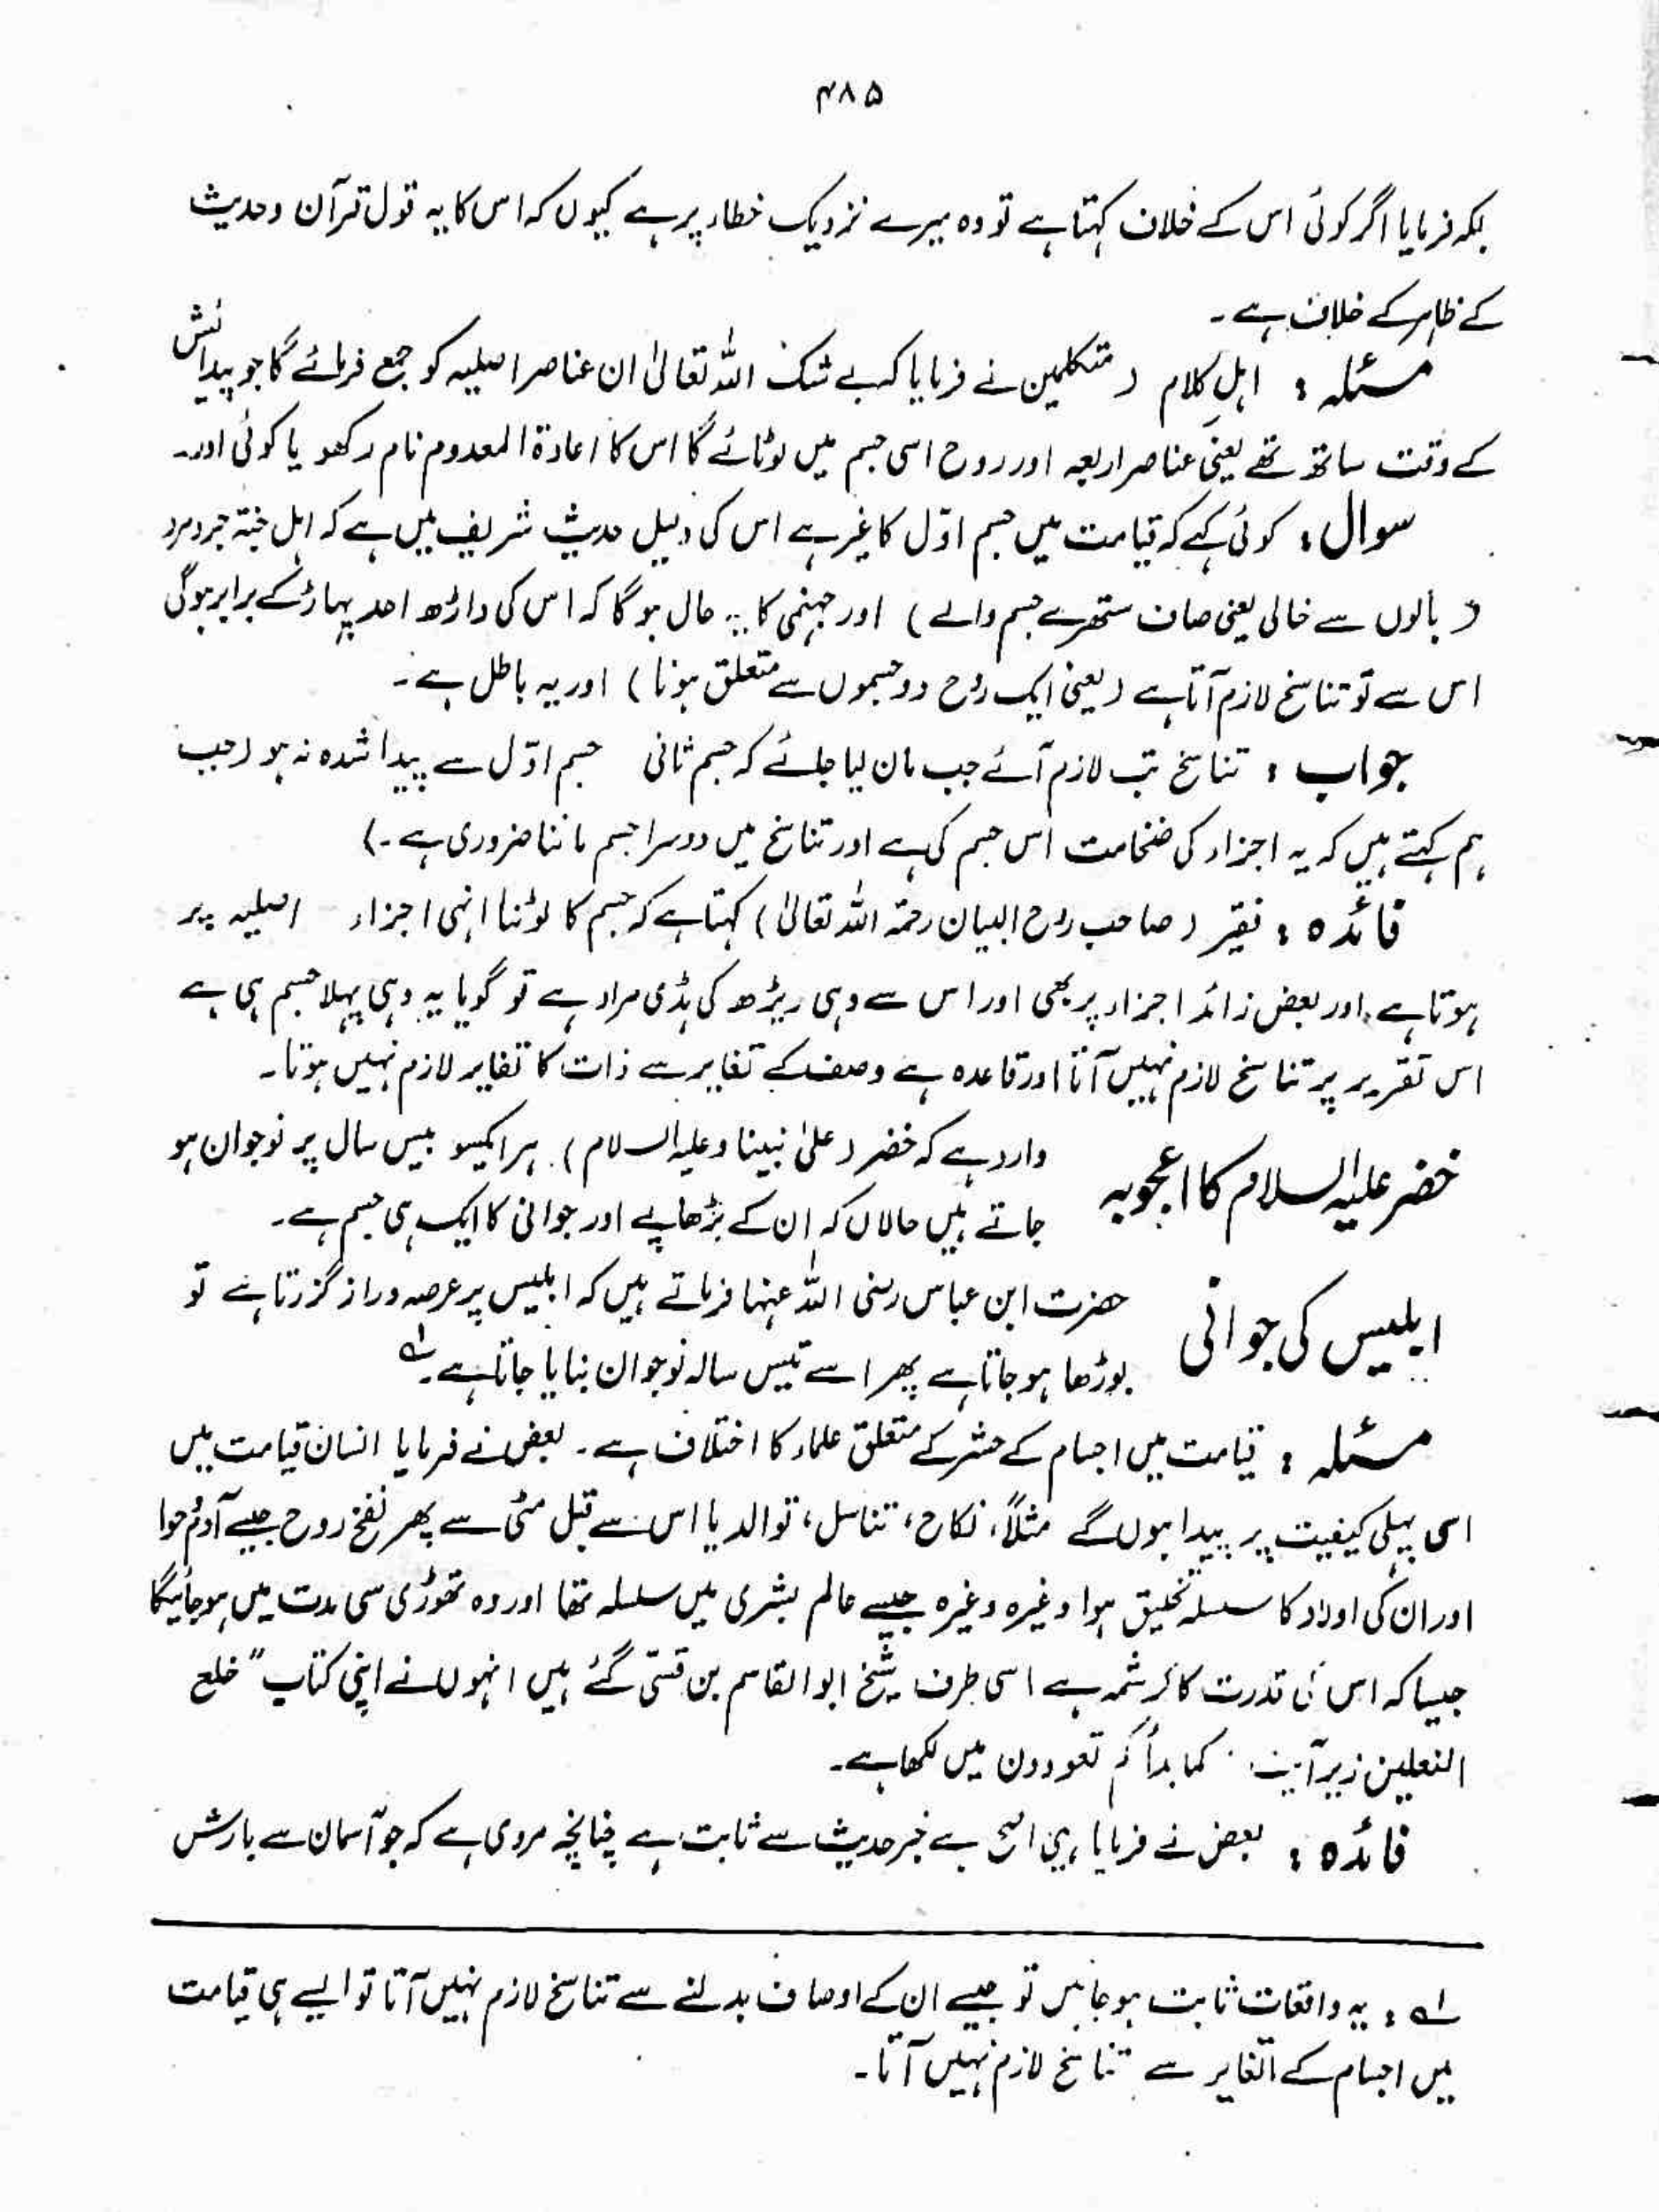 ۴۸۵
بلکہ فرمایا اگر کوئی اس کے خلاف کہتا ہے تو وہ میرے نزدیک خطاء پر ہے کیوں کہ اس کا یہ قول قرآن و حدیث
کے ظاہر کے خلاف ہے۔
مسئلہ : اہلِ کلام ( متکلمین نے فرمایا کہ بے شک اللہ تعالیٰ ان عناصر اصلیہ کو جمع فرمائے گا جو پیدائش
کے وقت ساتھ تھے یعنی عناصر اربعہ اور روح اسی جسم میں لوٹائے گا اس کا اعادۃ المعدوم نام رکھو یا کوئی اور۔
سوال : کوئی کہے کہ قیامت میں جسم اوّل کا غیر ہے اس کی دلیل حدیث شریف میں ہے کہ اہل جنۃ جرد مرد
( بالوں سے خالی یعنی صاف ستھرے جسم والے ) اور جہنمی کا یہ حال ہو گا کہ اس کی داڑھ احد پہاڑ کے برابر ہو گی
اس سے تو تناسخ لازم آتا ہے ( یعنی ایک روح دو جسموں سے متعلق ہونا ) اور یہ باطل ہے۔
جواب : تناسخ تب لازم آئے جب مان لیا جائے کہ جسم ثانی جسم اوّل سے پیدا شدہ نہ ہو (جب
ہم کہتے ہیں کہ یہ اجزاء کی ضخامت اس جسم کی ہے اور تناسخ میں دوسرا جسم ماننا ضروری ہے۔)
فائدہ : فقیر ( صاحب روح البیان رحمۃ اللہ تعالیٰ ) کہتا ہے کہ جسم کا لوٹنا انہی اجزاء اصلیہ پر
ہوتا ہے اور بعض زائد اجزاء پر بھی اور اس سے وہی ریڑھ کی ہڈی مراد ہے تو گویا یہ وہی پہلا جسم ہی ہے
اس تقریر پر تناسخ لازم نہیں آتا اور قاعدہ ہے وصف کے تغایر سے ذات کا تغایر لازم نہیں ہوتا۔
خضر علیہ السلام کا اعجوبہ
وارد ہے کہ خضر ( علیٰ نبینا و علیہ السلام ) ہر ایکسو بیس سال پر نوجوان ہو
جاتے ہیں حالاں کہ ان کے بڑھاپے اور جوانی کا ایک ہی جسم ہے۔
ابلیس کی جوانی
حضرت ابن عباس رضی اللہ عنہما فرماتے ہیں کہ ابلیس پر عرصہ دراز گزرتا ہے تو
بوڑھا ہو جاتا ہے پھر اسے تیس سالہ نوجوان بنایا جاتا ہے۔ لے
مسئلہ : قیامت میں اجسام کے حشر کے متعلق علماء کا اختلاف ہے۔ بعض نے فرمایا انسان قیامت میں
اسی پہلی کیفیت پر پیدا ہوں گے مثلاً، نکاح، تناسل، توالد یا اس سے قبل مٹی سے پھر نفخ روح جیسے آدم حوا
اور ان کی اولاد کا سلسلہ تخلیق ہوا وغیرہ وغیرہ جیسے عالم بشری میں سلسلہ تھا اور وہ تھوڑی سی مدت میں ہو جائیگا
جیسا کہ اس کی قدرت کا کرشمہ ہے اسی طرف شیخ ابوالقاسم بن قسّی گئے ہیں انہوں نے اپنی کتاب "خلع
النعلین زیر آیت کما بدأکم تعودون میں لکھا ہے۔
فائدہ : بعض نے فرمایا یہی اصح ہے خبر حدیث سے ثابت ہے چنانچہ مروی ہے کہ جو آسمان سے بارش
لے : یہ واقعات ثابت ہو جائیں تو جیسے ان کے اوصاف بدلنے سے تناسخ لازم نہیں آتا تو ایسے ہی قیامت
میں اجسام کے اتغایر سے تناسخ لازم نہیں آتا۔